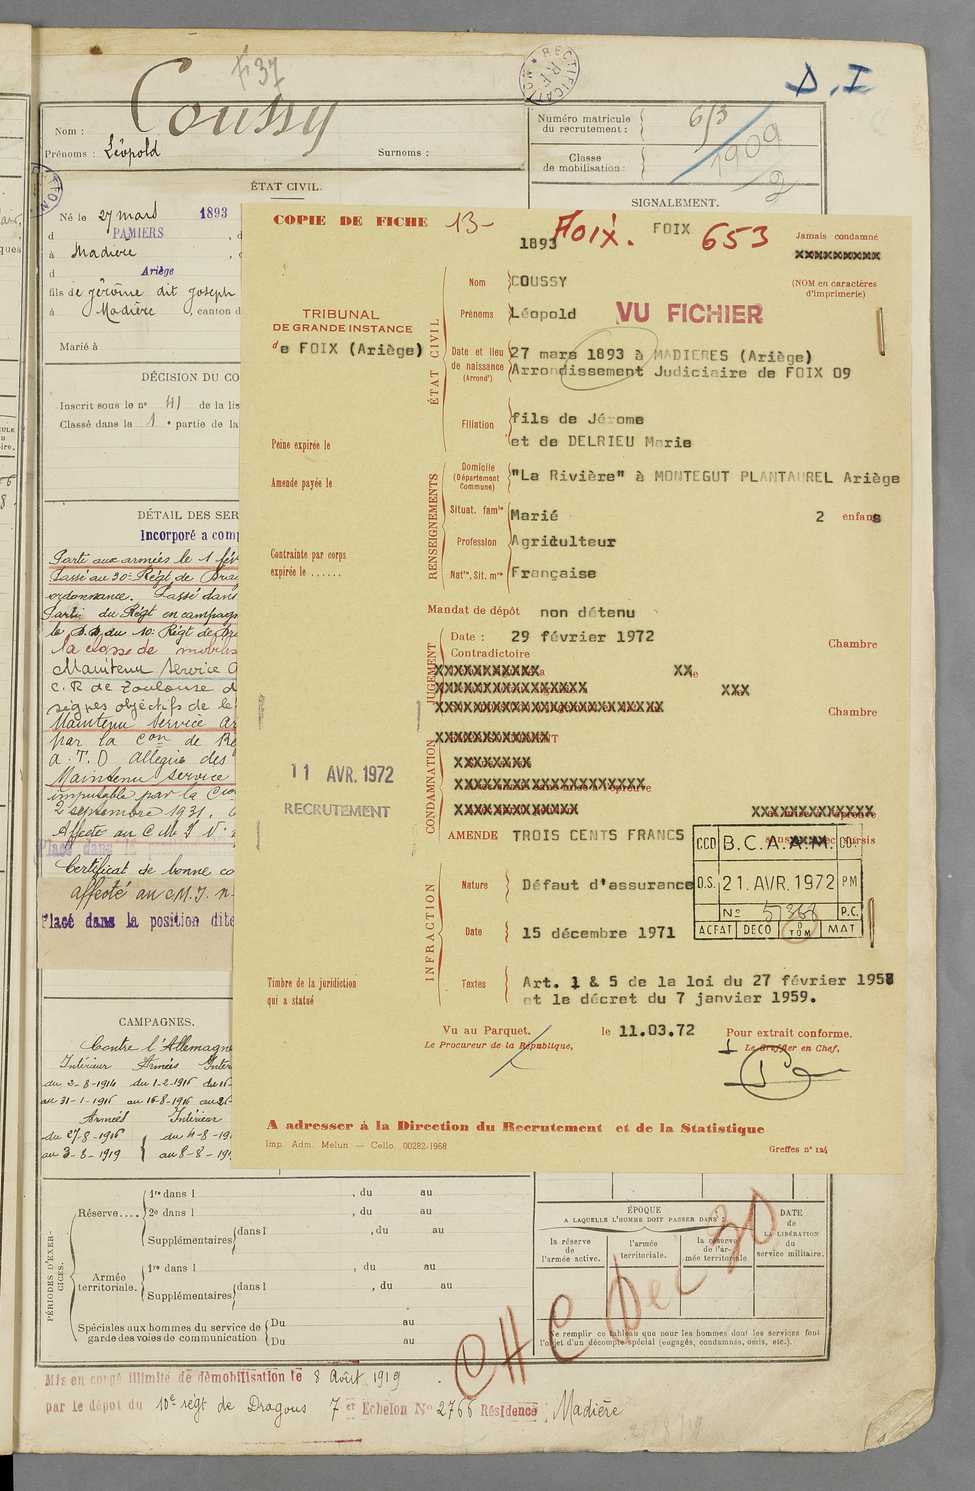 F 37
RECTIFICATION
R.F.
D.I
Nom : Coussy
Prénoms : Léopold Surnoms :
Numéro matricule
du recrutement : 653
Classe
de mobilisation : 1909
2
ÉTAT CIVIL.
SIGNALEMENT.
Né le 27 mars 1893
d PAMIERS , d
à Madière , c
d Ariège
fils de Jérôme dit Joseph
à Madière , canton d
Marié à
DÉCISION DU CO
Inscrit sous le nº 41 de la lis
Classé dans la 1 e partie de la
DÉTAIL DES SER
Incorporé a comp
Parti aux armées le 1 fév
Passé au 30e Régt de Drag
ordonnance. Passé dans
Parti du Régt en campagn
le D.D du 10e Régt de Dra
la classe de mobilis
Maintenu service a
C. R de Toulouse d
signes objectifs de le
Maintenu Service ar
par la Con de Ré
a. T. D allègue des
Maintenu service
imputable par la Com
2 septembre 1931.
Affecté au C M I n
Placé dans la position
Certificat de bonne co
affecté au C.M.I. n
Placé dans la position dite
CAMPAGNES.
Contre l'Allemagne
Intérieur Armées Intér
du 2-8-1914 du 1-2-1916 du 16
au 31-1-1916 au 16-8-1916 au 26
Armées Intérieur
du 27-8-1916 du 4-8-19
au 3-8-1919 au 8-8-19
COPIE DE FICHE 13-
1893 Foix. FOIX 653
Jamais condamné
XXXXXXXXX
(NOM en caractères
d'imprimerie)
VU FICHIER
TRIBUNAL
DE GRANDE INSTANCE
de FOIX (Ariège)
ÉTAT CIVIL
Nom COUSSY
Prénoms Léopold
Date et lieu
de naissance
(Arrondt)
27 mars 1893 à MADIERES (Ariège)
Arrondissement Judiciaire de FOIX 09
Filiation
fils de Jérome
et de DELRIEU Marie
Peine expirée le
Amende payée le
Contrainte par corps
expirée le ......
RENSEIGNEMENTS
Domicile
(Département
Commune)
"La Rivière" à MONTEGUT PLANTAUREL Ariège
Situat. famle Marié 2 enfans
Profession Agriculteur
Natle, Sit. mre Française
Mandat de dépôt non détenu
JUGEMENT
Date : 29 février 1972 Chambre
Contradictoire
XXXXXXXXXXX XXe
XXXXXXXXXXXXXXXX XXX
XXXXXXXXXXXXXXXXXXXXXXXX Chambre
11 AVR. 1972
RECRUTEMENT
CONDAMNATION
XXXXXXXXXXXXT
XXXXXXXX
XXXXXXXXXXXXXXXXXXXX
XXXXXXXXXXXXX XXXXXXXXXXXXX
AMENDE TROIS CENTS FRANCS sans XXXX sursis
CCD B.C.A.A.M. CDI
D.S. 21. AVR. 1972 PM
Nº 51368 P.C.
ACFAT DECO D TOM MAT
INFRACTION
Nature Défaut d'assurance
Date 15 décembre 1971
Textes
Art. 1 & 5 de la loi du 27 février 1958
et le décret du 7 janvier 1959.
Timbre de la juridiction
qui a statué
Vu au Parquet. le 11.03.72 Pour extrait conforme.
Le Procureur de la République, Le Greffier en Chef,
A adresser à la Direction du Recrutement et de la Statistique
Imp. Adm. Melun — Cello. 00282-1968 Greffes nº 124
PÉRIODES D'EXERCICES.
Réserve....
1re dans l , du au
2e dans l , du au
Supplémentaires dans l , du au
Armée
territoriale.
1re dans l , du au
Supplémentaires dans l , du au
Spéciales aux hommes du service de
garde des voies de communication
Du au
Du au
ÉPOQUE
A LAQUELLE L'HOMME DOIT PASSER DANS :
la réserve
de
l'armée active.
l'armée
territoriale.
la réserve
de l'ar-
mée territoriale.
DATE
de
LA LIBÉRATION
du
service militaire.
Ne remplir ce tableau que pour les hommes dont les services font
l'objet d'un décompte spécial (engagés, condamnés, omis, etc.).
CHC Dec 30
Mis en congé illimité de démobilisation le 8 Août 1919
par le dépot du 10e régt de Dragons 7 er Echelon Nº 2766 Résidence Madière